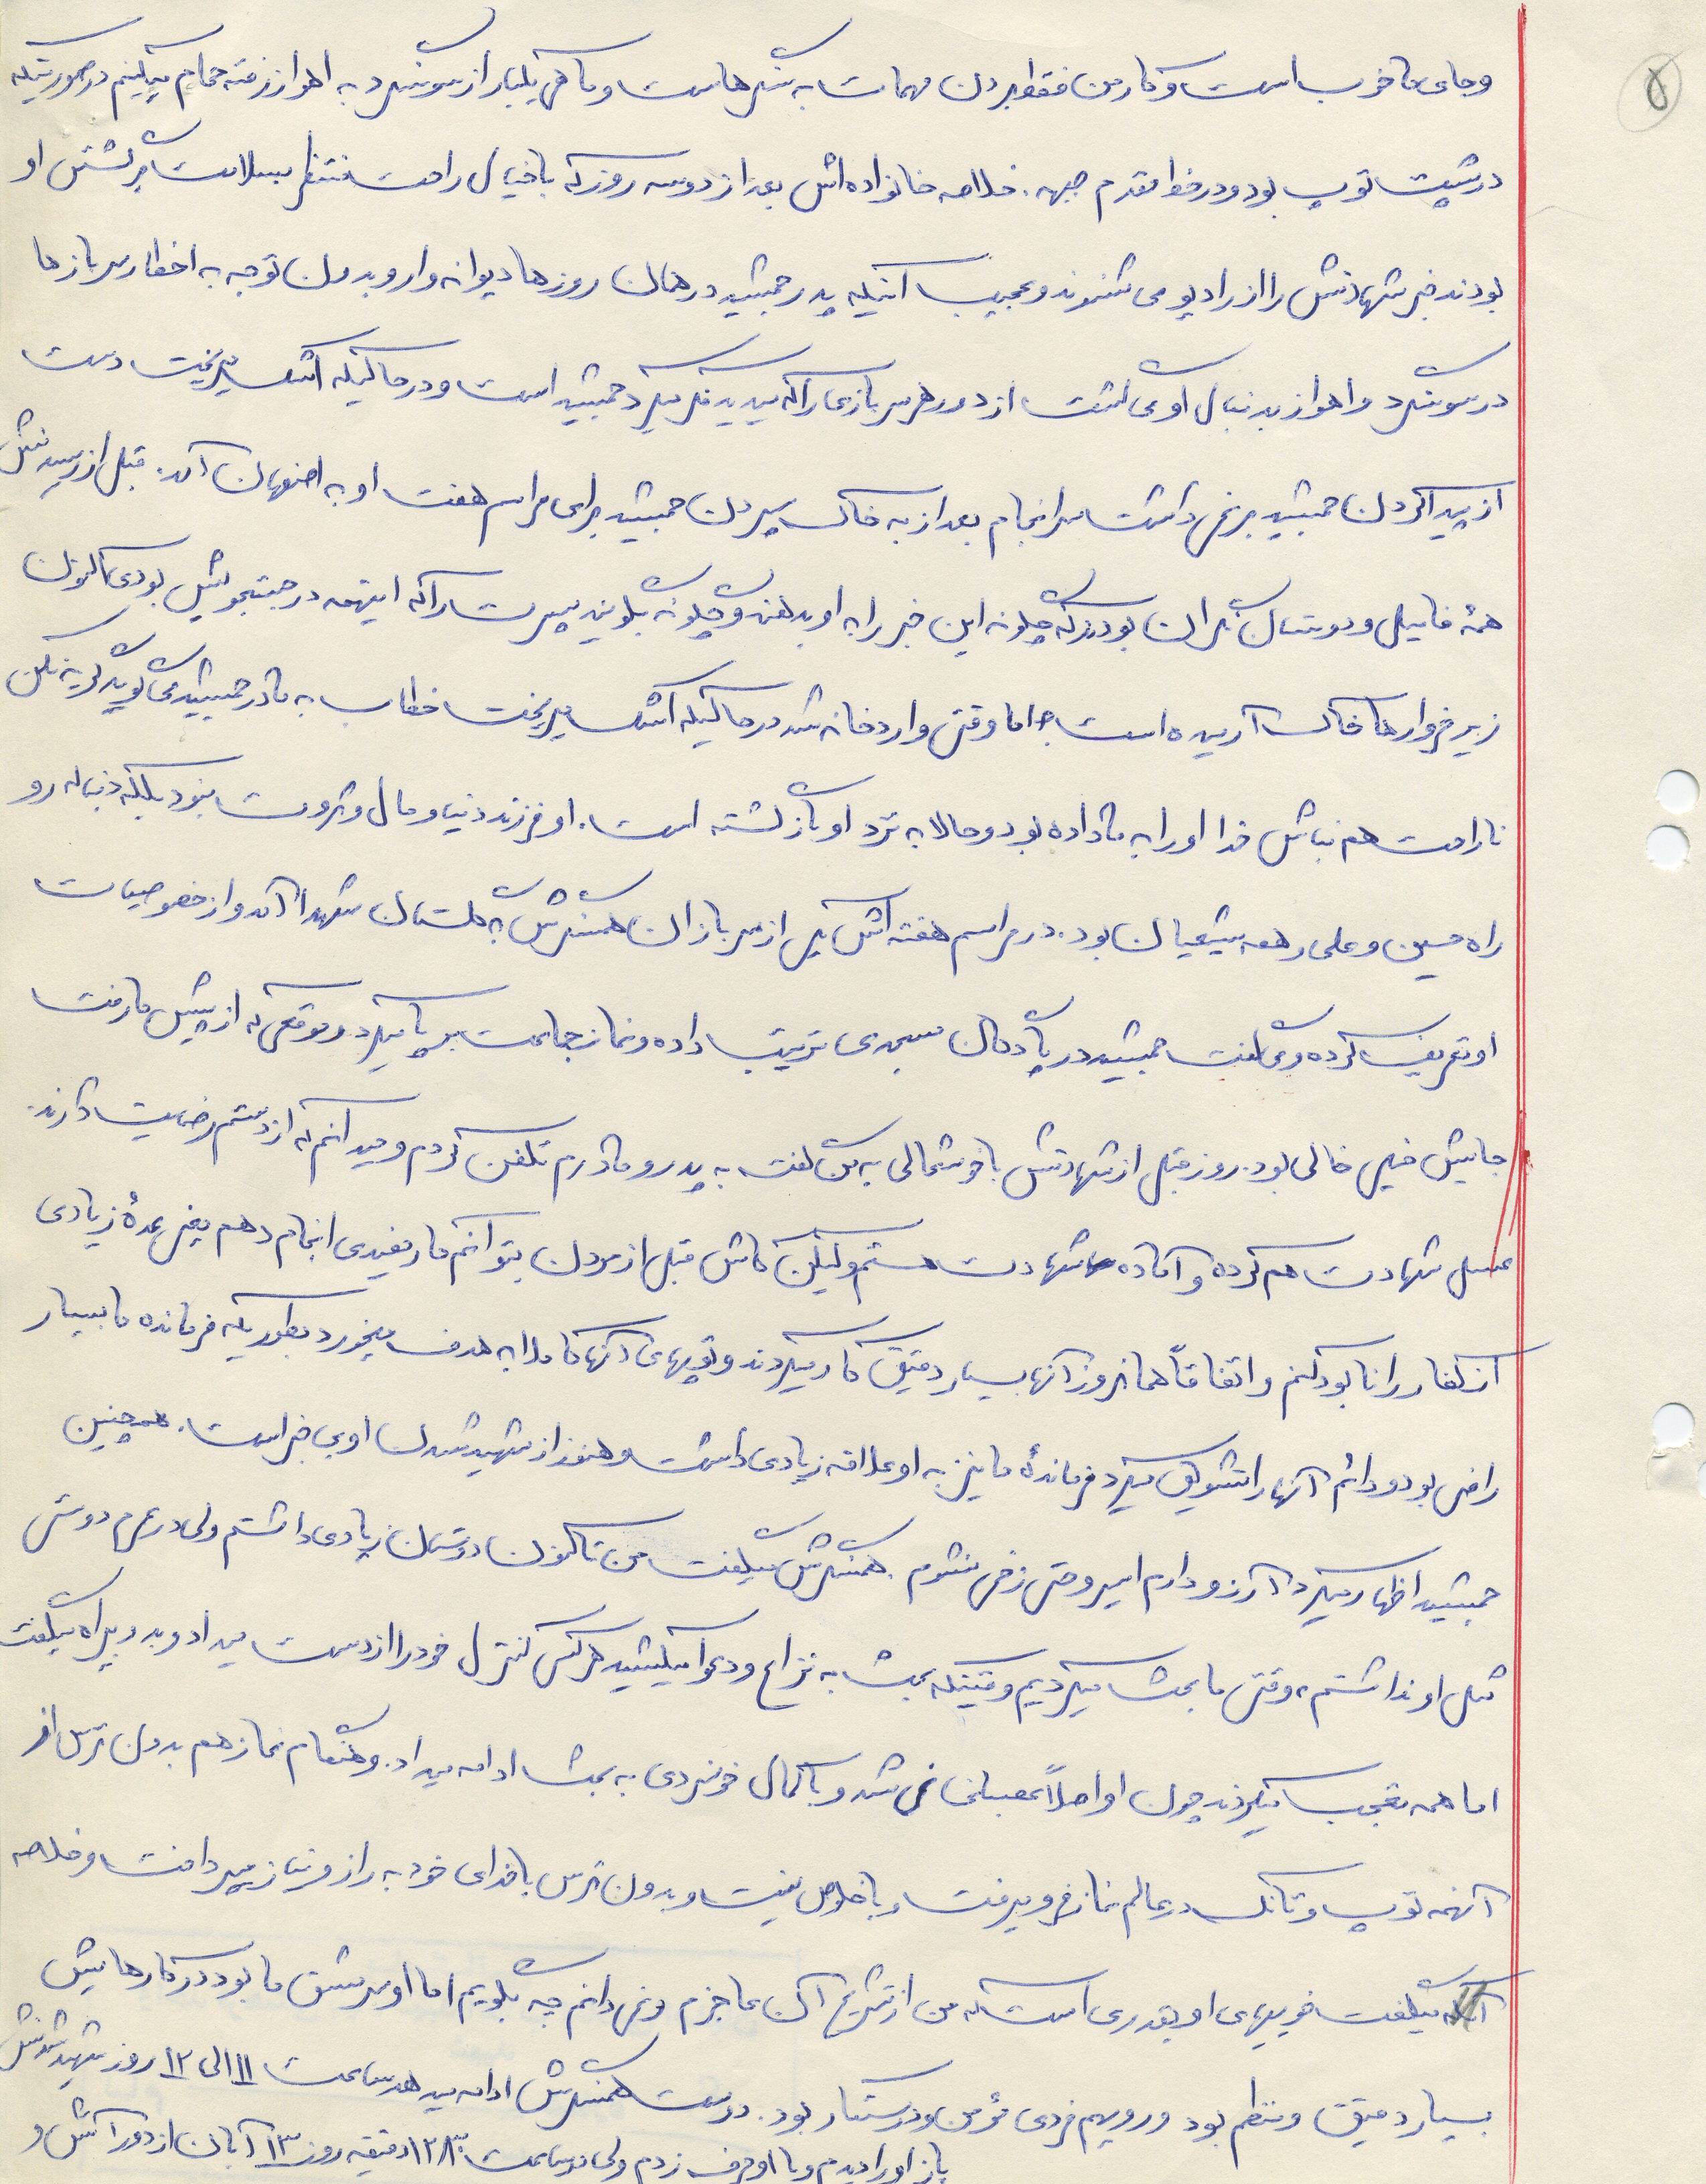 ۵
و جای ما خوب است و کار من فقط بردن مهمات به سنگرهاست و ماهی یکبار از سوسنگرد به اهواز رفته حمام میکنیم در صورتیکه
در پشت توپ بود و در خط مقدم جبهه. خلاصه خانواده‌اش بعد از دو سه روز که با خیال راحت منتظر بسلامت برگشتن او
بودند خبر شهادتش را از رادیو می شنوند و عجیب اینکه پدر جمشید در همان روزها دیوانه وار و بدون توجه به اخطار سربازها
در سوسنگرد و اهواز بدنبال او می گشت از دور هر سربازی را که میدید فکر میکرد جمشید است و در حالیکه اشک میریخت دست
از پیدا کردن جمشید برنمی داشت سرانجام بعد از به خاک سپردن جمشید برای مراسم هفت او به اصفهان آمد. قبل از رسیدنش
همهٔ فامیل و دوستان نگران بودند که چگونه این خبر را به او بدهند و چگونه بگویند پسرت را که اینهمه در جستجویش بودی اکنون
زیر خروارها خاک آرمیده است. اما وقتی وارد خانه شد در حالیکه اشک میریخت خطاب به مادر جمشید می گوید گریه نکن
ناراحت هم نباش خدا او را به ما داده بود و حالا به نزد او بازگشته است. او فرزند دنیا و مال و ثروت نبود بلکه دنباله رو
راه حسین و علی و همه شیعیان بود. در مراسم هفته اش یکی از سربازان همسنگرش به گلستان شهدا آمد و از خصوصیات
او تعریف کرده و می گفت جمشید در پادگان مسجدی ترتیب داده و نماز جماعت برپا میکرد و موقعی که از پیش ما رفت
جایش خیلی خالی بود. روز قبل از شهادتش با خوشحالی به من گفت به پدر و مادرم تلفن کردم و میدانم که از دستم رضایت دارند.
غسل شهادت هم کرده و آماده شهادت هستم ولیکن کاش قبل از مردن بتوانم کار مفیدی انجام دهم یعنی عدهٔ زیادی
از کفار را نابود کنم و اتفاقاً همانروز آنها بسیار دقیق کار میکردند و توپهای آنها کاملا به هدف میخورد بطوریکه فرمانده ما بسیار
راضی بود و دائم آنها را تشویق میکرد فرماندهٔ ما نیز به او علاقه زیادی داشت و هنوز از شهید شدن او بی خبر است. همچنین
جمشید اظهار میکرد آرزو دارم اسیر و حتی زخمی نشوم. همسنگرش میگفت من تاکنون دوستان زیادی داشتم ولی در عمرم دوستی
مثل او نداشتم، وقتی ما بحث میکردیم وقتیکه بحث به نزاع و دعوا میکشید هرکس کنترل خود را از دست میداد و بد و بیراه میگفت
اما همه تعجب میکردند چون او اصلاً عصبانی نمی شد و با کمال خونسردی به بحث ادامه میداد. و هنگام نماز هم بدون ترس از
آنهمه توپ و تانک در عالم نماز فرو میرفت و با خلوص نیت و بدون ترس با خدای خود به راز و نیاز میپرداخت و خلاصه
آنکه میگفت خوبیهای او بقدری است که من از تشریح آن عاجزم و نمی دانم چه بگویم اما او سرمشق ما بود در کارهایش
بسیار دقیق و منظم بود و رویهم فردی مؤمن و درستکار بود. دوست همسنگرش ادامه میدهد ساعت ۱۱ الی ۱۲ روز شهید شدنش
باز او را دیدم و با او حرف زدم ولی در ساعت ۱۲/۳۰ دقیقه روز ۱۳ آبان از دور آتش و